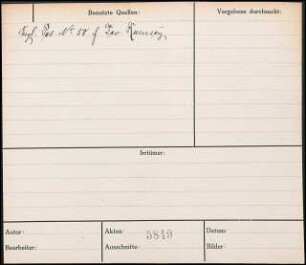 Benutzte Quellen:
Vergebens durchsucht:
Engl. Pat. No. 50 f. Dav. Ramsey,
Irrtümer:
Autor:
Akten
5849
Datum:
Bearbeiter:
Ausschnitte:
Bilder: